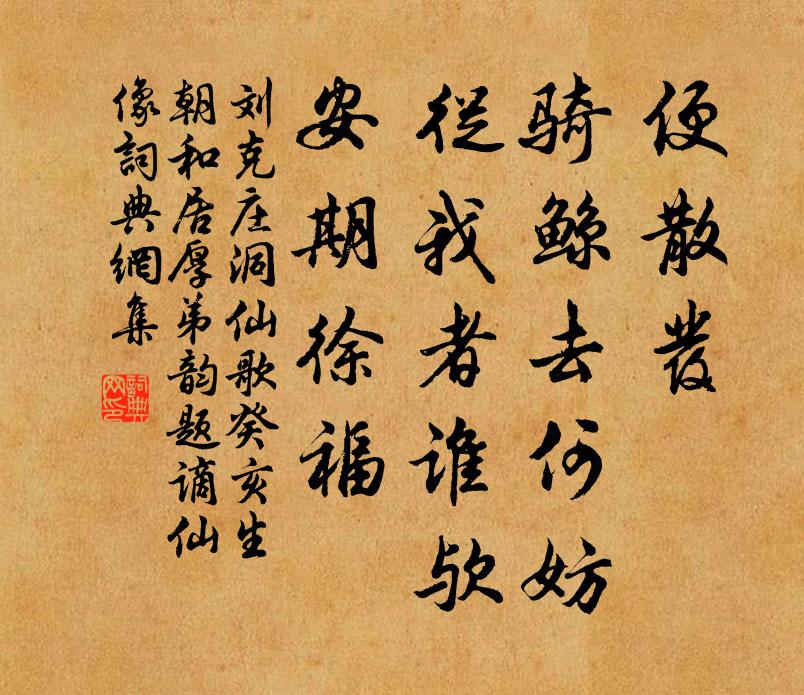 便散發
騎鲸去何妨
從我者谁欤
安期徐福
刘克庄洞仙歌癸亥生
朝和居厚弟韵题谪仙
像詞典網集
詞典
网印